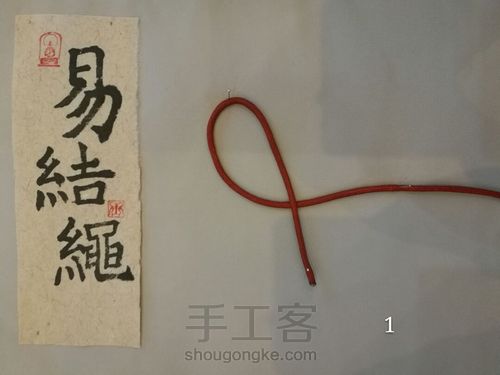 易
結
繩
手工客
shougongke.com
1